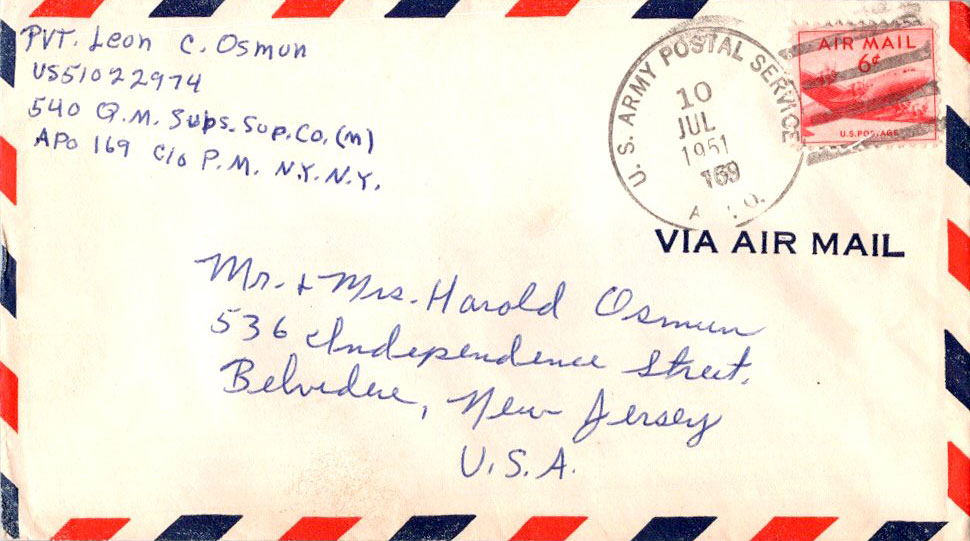 PVT. Leon C. Osmun
US51022974
540 Q.M. Subs. Sup. Co. (m)
APO 169 c/o P.M. N.Y. N.Y.
U. S. ARMY POSTAL SERVICE
10
JUL
1951
169
A O.
AIR MAIL
6¢
U.S. POSTAGE
VIA AIR MAIL
Mr. & Mrs. Harold Osmun
536 Independence Street.
Belvidere, New Jersey
U.S.A.